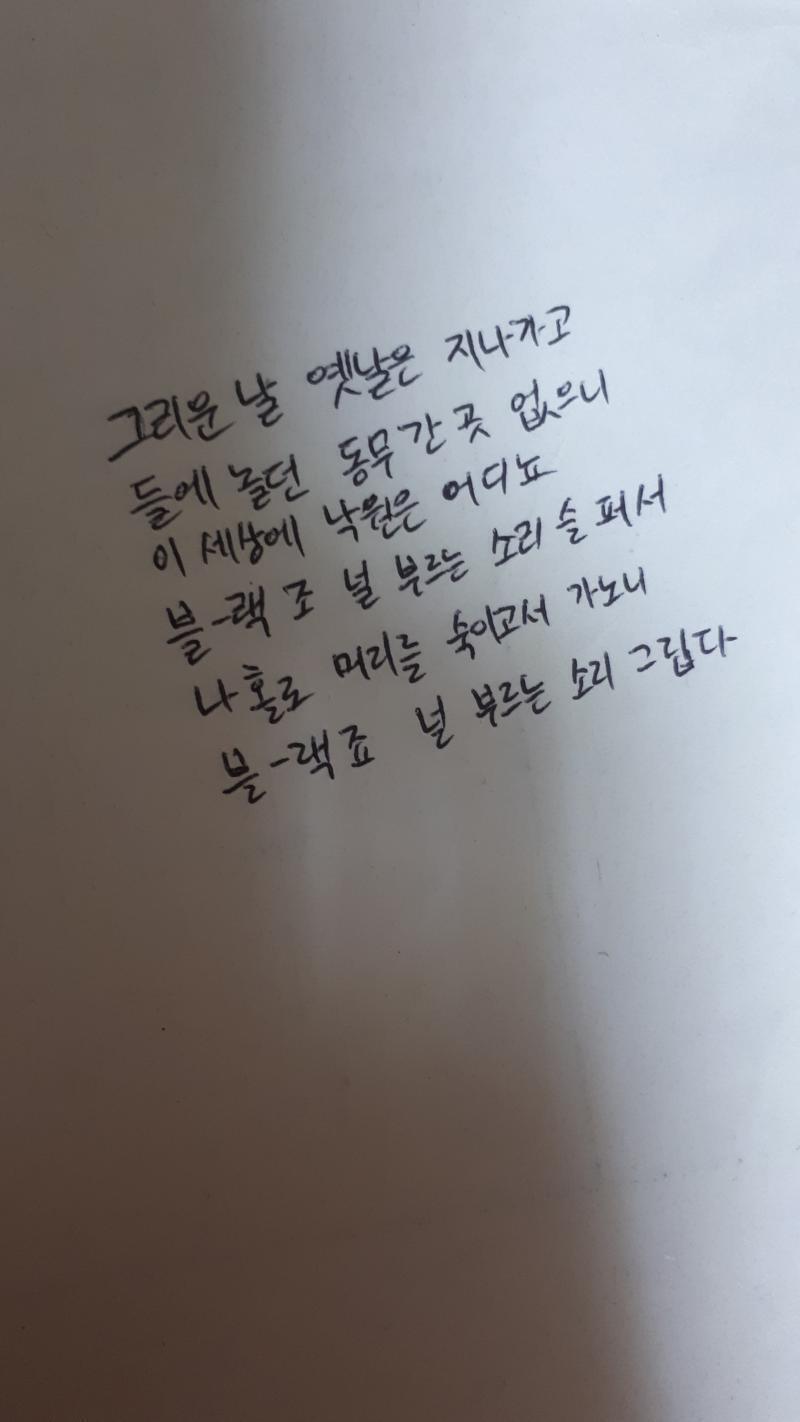 그리운 날 옛날은 지나가고
들에 놀던 동무 간 곳 없으니
이 세상에 낙원은 어디뇨
블-랙 조 널 부르는 소리 슬퍼서
나 홀로 머리를 숙이고서 가노니
블-랙 죠 널 부르는 소리 그립다